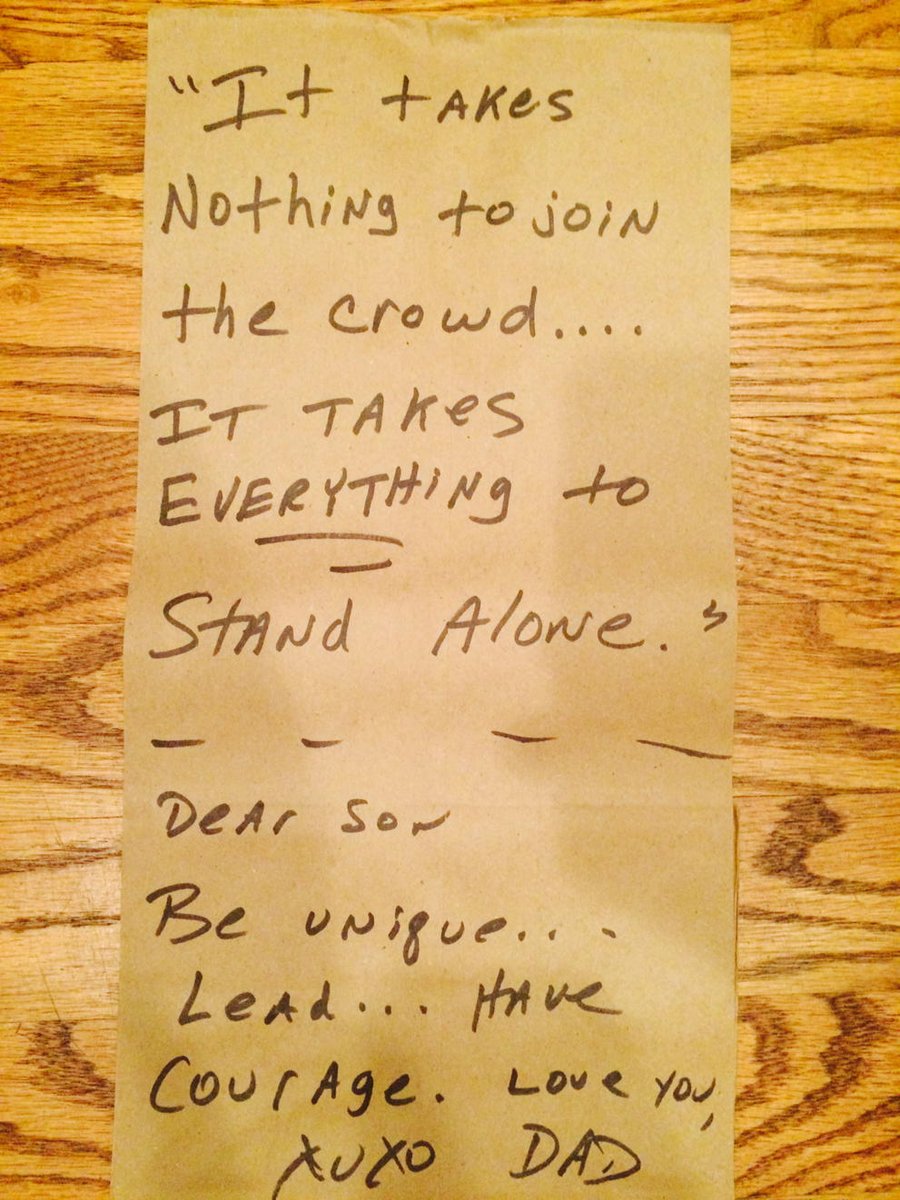 "It takes
Nothing to join
the crowd....
IT TAKES
EVERYTHing to
Stand Alone."
- - - -
Dear Son
Be unique...
Lead... Have
Courage. Love you,
XOXO DAD